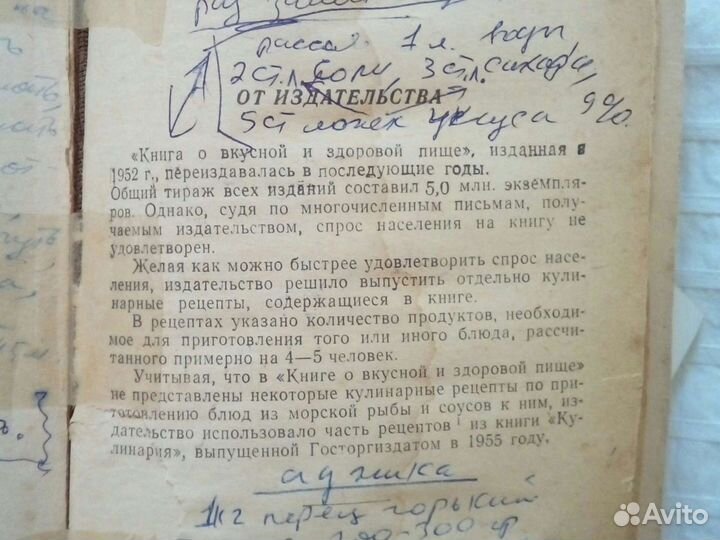 раз
рассол 1 л. воды
2 ст.л. соли, 3 ст.л. сахара,
ОТ ИЗДАТЕЛЬСТВА
5 ст ложек уксуса 9%.
«Книга о вкусной и здоровой пище», изданная в
1952 г., переиздавалась в последующие годы.
Общий тираж всех изданий составил 5,0 млн. экземпля-
ров. Однако, судя по многочисленным письмам, полу-
чаемым издательством, спрос населения на книгу не
удовлетворен.
Желая как можно быстрее удовлетворить спрос насе-
ления, издательство решило выпустить отдельно кули-
нарные рецепты, содержащиеся в книге.
В рецептах указано количество продуктов, необходи-
мое для приготовления того или иного блюда, рассчи-
танного примерно на 4—5 человек.
Учитывая, что в «Книге о вкусной и здоровой пище»
не представлены некоторые кулинарные рецепты по при-
готовлению блюд из морской рыбы и соусов к ним, из-
дательство использовало часть рецептов из книги «Ку-
линария», выпущенной Госторгиздатом в 1955 году.
аджика
1 кг перец горький
300 гр.
Avito